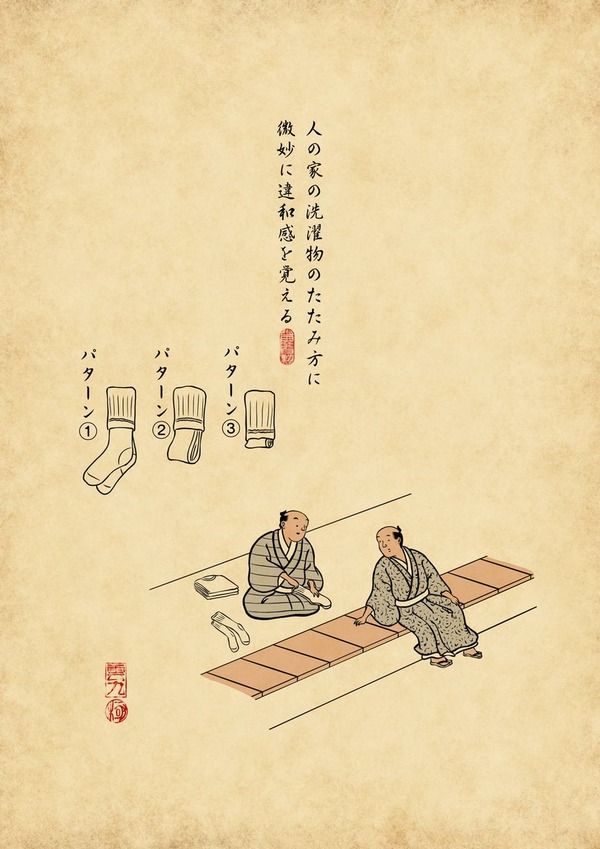 人の家の洗濯物のたたみ方に
微妙に違和感を覚える
パターン③
パターン②
パターン①